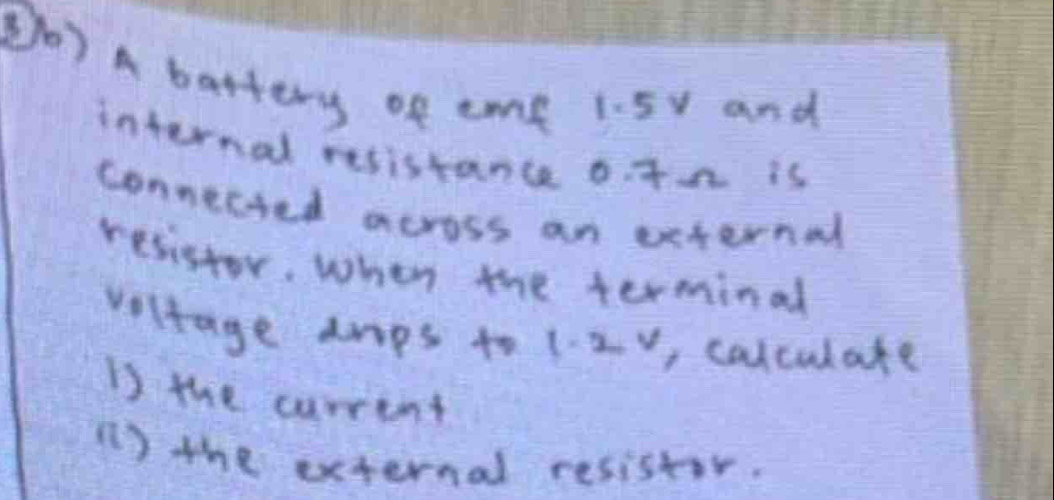 8b) A battery of emf 1.5V and
internal resistance 0.7Ω is
connected across an external
resistor. When the terminal
voltage drops to 1.2V, calculate
i) the current
ii) the external resistor.